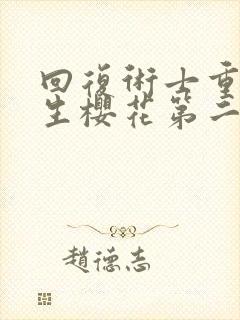 回復術士重
生櫻花第二
趙德志